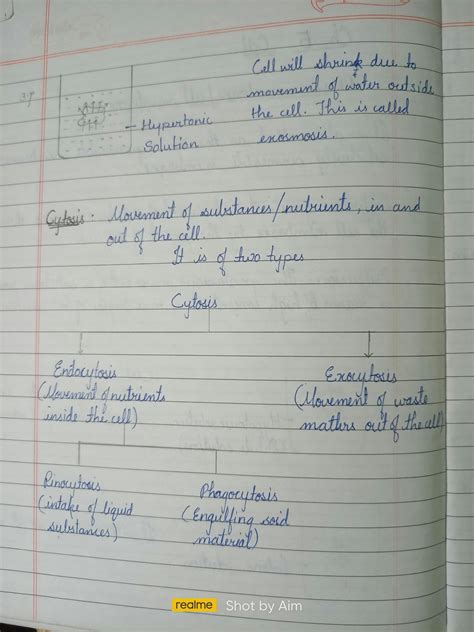 3)
Cell will shrink due to
movement of water outside
the cell. This is called
exosmosis.
– Hypertonic
Solution
Cytosis. Movement of substances/nutrients, in and
out of the cell.
It is of two types
Cytosis
Endocytosis
(Movement of nutrients
inside the cell)
Exocytosis
(Movement of waste
matters out of the cell)
Pinocytosis
(intake of liquid
substances)
Phagocytosis
(Engulfing soid
material)
realme Shot by Aim